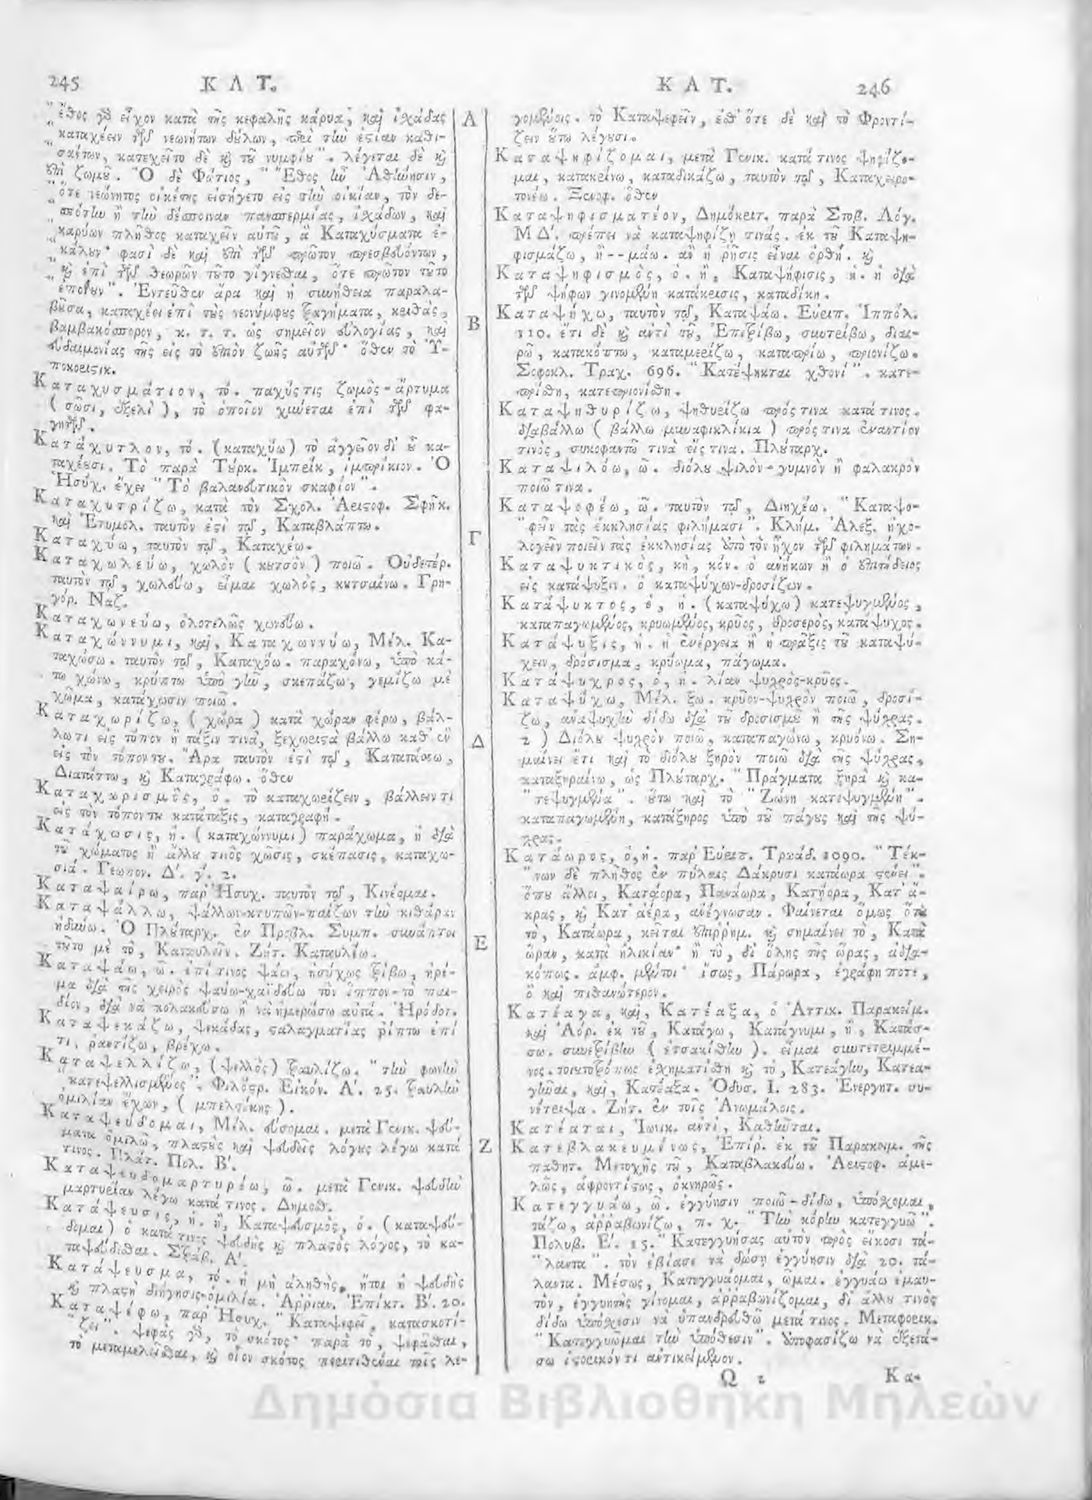 245 ΚΑΤ.
„ ἔθος γδ εἶχον κατὰ τῆς κεφαλῆς κάρυα, καὶ ἰχάδας
„ καταχέειν τῶν νεωνήτων δούλων, περὶ τὴν ἑστίαν καθι-
„ σάντων, κατεχεῖτο δὲ καὶ τοῦ νυμφίου". λέγεται δὲ καὶ
ἐπὶ ζωμοῦ. Ὁ δὲ Φώτιος, " Ἔθος ἦν Ἀθήνησιν,
„ ὅτε νεώνητος οἰκέτης εἰσήγετο εἰς τὴν οἰκίαν, τὸν δε-
„ σπότην ἢ τὴν δέσποιναν πανσπερμίας, ἰχάδων, καὶ
„ καρύων πλῆθος καταχεῖν αὐτοῦ, ἃ Καταχύσματα ἐ-
„ κάλουν· φασὶ δὲ καὶ ἐπὶ τῶν πρῶτον πρεσβευόντων,
„ καὶ ἐπὶ τῶν θεωρῶν τοῦτο γίγνεσθαι, ὅτε πρῶτον τοῦτο
„ ἐποίουν". Ἐντεῦθεν ἄρα καὶ ἡ συνήθεια παραλα-
βοῦσα, καταχέει ἐπὶ τοὺς νεονύμφους τραγήματα, κριθὰς,
βαμβακόσπορον, κ. τ. τ. ὡς σημεῖον εὐλογίας, καὶ
εὐδαιμονίας τῆς εἰς τὸ ἐπιὸν ζωῆς αὐτῶν· ὅθεν τὸ Ὑ-
ποκοριστικ.
Καταχυσμάτιον, τό. παχύς τις ζωμὸς-ἄρτυμα
( σῶσι, τζελὶ ), τὸ ὁποῖον χύνεται ἐπὶ τῶν φα-
γητῶν.
Κατάχυτλον, τό. (καταχύω) τὸ ἀγγεῖον δι' οὗ κα-
ταχέουσι. Τὸ παρὰ Τούρκ. Ἰμπρὶκ, ἰμπρίκιον. Ὁ
Ἡσύχ. ἔχει " Τὸ βαλανευτικὸν σκαφίον".
Καταχυτρίζω, κατὰ τὸν Σχολ. Ἀριστοφ. Σφηκ.
καὶ Ἐτυμολ. ταυτόν ἐστι τῷ, Καταβλάπτω.
Καταχύω, ταυτὸν τῷ, Καταχέω.
Καταχωλεύω, χωλὸν ( κουτσὸν ) ποιῶ. Οὐδετέρ.
ταυτὸν τῷ, χωλεύω, εἶμαι χωλὸς, κουτσαίνω. Γρη-
γόρ. Ναζ.
Καταχωνεύω, ὁλοτελῶς χωνεύω.
Καταχώννυμι, καὶ, Καταχωννύω, Μέλ. Κα-
ταχώσω. ταυτὸν τῷ, Καταχόω. παραχόνω, ὑπὸ κά-
τω χώνω, κρύπτω ὑπὸ γῆν, σκεπάζω, γεμίζω μὲ
χῶμα, κατάχωσιν ποιῶ.
Καταχωρίζω, ( χώρα ) κατὰ χώραν φέρω, βάλ-
λω τι εἰς τόπον ἢ τάξιν τινὰ, ξεχωριστὰ βάλλω καθ' ἓν
εἰς τὸν τόπον του. Ἄρα ταυτόν ἐστι τῷ, Κατατάσσω,
Διατάττω, καὶ Καταγράφω. ὅθεν
Καταχωρισμὸς, ὁ. τὸ καταχωρίζειν, βάλλειν τι
εἰς τὸν τόπον του κατάταξις, καταγραφή.
Κατάχωσις, ἡ. ( καταχώννυμι ) παράχωμα, ἡ διὰ
τοῦ χώματος ἢ ἄλλου τινὸς χῶσις, σκέπασις, καταχω-
σιά. Γεωπον. Δ'. γ'. 2.
Καταψαίρω, παρ' Ἡσυχ. ταυτὸν τῷ, Κινέομαι.
Καταψάλλω, ψάλλων-κτυπῶν-παίζων τὴν κιθάραν
ἡδύνω. Ὁ Πλούταρχ. ἐν Προβλ. Συμπ. συνάπτει
τοῦτο μὲ τὸ, Καταυλῶν. Ζήτ. Καταυλέω.
Καταψάω, ῶ. ἐπί τινος ψάω, ἡσύχως τρίβω, ἠρέ-
μα διὰ τῆς χειρὸς ψαύω-χαϊδεύω τὸν ἵππον-τὸ παι-
δίον, διὰ νὰ κολακεύσω ἢ νὰ ἡμερώσω αὐτά. Ἡρόδοτ.
Καταψεκάζω, ψεκάδας, σταλαγματίας ρίπτω ἐπί
τι, ραντίζω, βρέχω.
Καταψελλίζω, (ψελλὸς) τραυλίζω. " τὴν φωνὴν
„ κατεψελλισμένος". Φιλόστρ. Εἰκόν. Α'. 25. τραυλὴν
ὁμιλίαν ἔχων, ( μπελτέκης ).
Καταψεύδομαι, Μέλ. εύσομαι. μετὰ Γενικ. ψεύ-
ματα ὁμιλῶ, πλαστοὺς καὶ ψευδεῖς λόγους λέγω κατά
τινος. Πλάτ. Πολ. Β'.
Καταψευδομαρτυρέω, ῶ. μετὰ Γενικ. ψευδῆ
μαρτυρίαν λέγω κατά τινος. Δημοσθ.
Κατάψευσις, ἡ. ἢ, Καταψευσμὸς, ὁ. ( καταψεύ-
δομαι ) ὁ κατά τινος ψευδὴς καὶ πλαστὸς λόγος, τὸ κα-
ταψεύδεσθαι. Στράβ. Α'.
Κατάψευσμα, τό. ἡ μὴ ἀληθὴς, ἤτοι ἡ ψευδὴς
καὶ πλαστὴ διήγησις-ὁμιλία. Ἀρριαν. Ἐπίκτ. Β'. 20.
Καταψέφω, παρ' Ἡσυχ. " Καταψεφεῖ, κατασκοτί-
" ζει". ψέφας γδ, τὸ σκότος· παρὰ τὸ, ψεφᾶσθαι,
τὸ μεταμελεῖσθαι, καὶ οἷον σκότος περιτιθέναι τοῖς λε-
Α
Β
Γ
Δ
Ε
Ζ
ΚΑΤ. 246
γομένοις. τὸ Καταψεφεῖν, ἔσθ' ὅτε δὲ καὶ τὸ Φροντί-
ζειν οὕτω λέγουσι.
Καταψηφίζομαι, μετὰ Γενικ. κατά τινος ψηφίζο-
μαι, κατακρίνω, καταδικάζω, ταυτὸν τῷ, Καταχειρο-
τονέω. Ξενοφ. ὅθεν
Καταψηφισματέον, Δημόκριτ. παρὰ Στοβ. Λόγ.
ΜΔ'. πρέπει νὰ καταψηφίζῃ τινάς. ἐκ τοῦ Καταψη-
φισμάζω, ἢ--μάω. ἂν ἡ ρῆσις εἶναι ὀρθή. καὶ
Καταψηφισμὸς, ὁ. ἢ, Καταψήφισις, ἡ. ἡ διὰ
τῶν ψήφων γινομένη κατάκρισις, καταδίκη.
Καταψήχω, ταυτὸν τῷ, Καταψάω. Εὐριπ. Ἱππόλ.
110. ἔτι δὲ καὶ ἀντὶ τοῦ, Ἐπιτρίβω, συντρίβω, διαι-
ρῶ, κατακόπτω, καταμερίζω, καταπρίω, πριονίζω.
Σοφοκλ. Τραχ. 696. " Κατέψηκται χθονί". κατε-
πρίσθη, κατεπριονίσθη.
Καταψηθυρίζω, ψηθυρίζω πρός τινα κατά τινος.
διαβάλλω ( βάλλω μουναφικλίκια ) πρός τινα ἐναντίον
τινὸς, συκοφαντῶ τινὰ εἴς τινα. Πλούταρχ.
Καταψιλόω, ῶ. διόλου ψιλὸν-γυμνὸν ἢ φαλακρὸν
ποιῶ τινα.
Καταψοφέω, ῶ. ταυτὸν τῷ, Διηχέω. " Καταψο-
" φεῖν τὰς ἐκκλησίας φιλήμασι". Κλήμ. Ἀλεξ. ἠχο-
λογεῖν ποιεῖν τὰς ἐκκλησίας ὑπὸ τὸν ἦχον τῶν φιλημάτων.
Καταψυκτικὸς, κὴ, κόν. ὁ ἀνήκων ἢ ὁ ἐπιτήδειος
εἰς κατάψυξιν. ὁ καταψύχων-δροσίζων.
Κατάψυκτος, ὁ, ἡ. (καταψύχω) κατεψυγμένος,
καταπαγωμένος, κρυωμένος, κρύος, δροσερὸς, κατάψυχος.
Κατάψυξις, ἡ. ἡ ἐνέργεια ἢ ἡ πρᾶξις τοῦ καταψύ-
χειν, δρόσισμα, κρύωμα, πάγωμα.
Κατάψυχρος, ὁ, ἡ. λίαν ψυχρὸς-κρύος.
Καταψύχω, Μέλ. ξω. κρύον-ψυχρὸν ποιῶ, δροσί-
ζω, ἀναψυχὴν δίδω διὰ τοῦ δροσισμοῦ ἢ τῆς ψύχρας.
2 ) Διόλου ψυχρὸν ποιῶ, καταπαγώνω, κρυόνω. Ση-
μαίνει ἔτι καὶ τὸ διόλου ξηρὸν ποιῶ διὰ τῆς ψύχρας,
καταξηραίνω, ὡς Πλούταρχ. " Πράγματα ξηρὰ καὶ κα-
" τεψυγμένα". οὕτω καὶ τὸ " Ζώνη κατεψυγμένη".
καταπαγωμένη, κατάξηρος ὑπὸ τοῦ πάγους καὶ τῆς ψύ-
χρας.
Κατάωρος, ὁ, ἡ. παρ' Εὐριπ. Τρωάδ. 1090. " Τέκ-
" νων δὲ πλῆθος ἐν πύλαις Δάκρυσι κατάωρα στένει".
ὅπου ἄλλοι, Κατάορα, Πανάωρα, Κατήορα, Κατ' ἄ-
κρας, καὶ Κατ' ἀέρα, ἀνέγνωσαν. Φαίνεται ὅμως ὅτι
τὸ, Κατάωρα, κεῖται ἐπιρρημ. καὶ σημαίνει τὸ, Κατὰ
ὥραν, κατὰ ἡλικίαν· ἢ τὸ, δι' ὅλης τῆς ὥρας, ἀδια-
κόπως. ἀμφ. μέντοι· ἴσως, Πάρωρα, ἐγράφη ποτὲ,
ὃ καὶ πιθανώτερον.
Κατέαγα, καὶ, Κατέαξα, ὁ Ἀττικ. Παρακείμ.
καὶ Ἀόρ. ἐκ τοῦ, Κατάγω, Κατάγνυμι, ἢ, Κατάσ-
σω. συνετρίβην ( ἐτσακίσθην ). εἶμαι συντετριμμέ-
νος. τοιουτοτρόπως ἐχηματίσθη καὶ τὸ, Κατεάγην, Κατεα-
γῆναι, καὶ, Κατέαξα. Ὀδυσ. Ι. 283. Ἐνεργητ. συ-
νέτριψα. Ζήτ. ἐν τοῖς Ἀνωμάλοις.
Κατέαται, Ἰωνικ. ἀντὶ, Κάθηνται.
Κατεβλακευμένως, Ἐπίρ. ἐκ τοῦ Παρακειμ. τῆς
παθητ. Μετοχῆς τοῦ, Καταβλακεύω. Ἀριστοφ. ἀμε-
λῶς, ἀφροντίστως, ὀκνηρῶς.
Κατεγγυάω, ῶ. ἐγγύησιν ποιῶ-δίδω, ὑπόχομαι,
τάζω, ἀρραβωνίζω, π. χ. " Τὴν κόρην κατεγγυῶ".
Πολυβ. Ε'. 15. " Κατεγγυήσας αὐτὸν πρὸς εἴκοσι τά-
" λαντα". τὸν ἐβίασε νὰ δώσῃ ἐγγύησιν διὰ 20. τά-
λαντα. Μέσως, Κατεγγυάομαι, ῶμαι. ἐγγυάω ἐμαυ-
τὸν, ἐγγυητὴς γίνομαι, ἀρραβωνίζομαι, δι' ἄλλου τινὸς
δίδω ὑπόσχεσιν νὰ ὑπανδρευθῶ μετά τινος. Μεταφορικ.
" Κατεγγυῶμαι τὴν ὑπόθεσιν". ἀποφασίζω νὰ ἐξετά-
σω ἱστορικόν τι ἀντικείμενον.
Q 2 Κα-
Δημόσια Βιβλιοθήκη Μηλεών